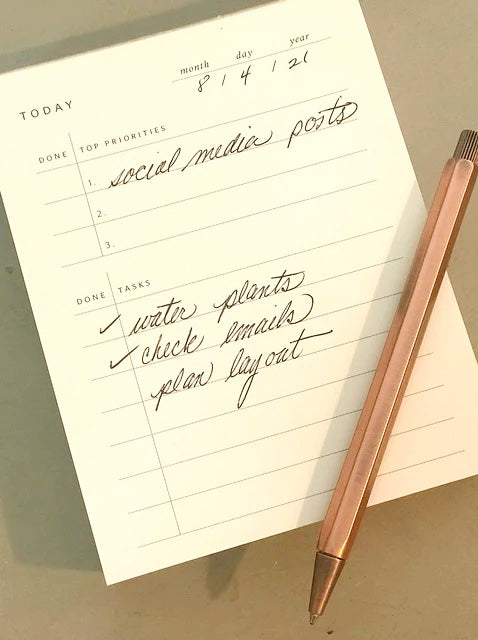 month day year
8 / 4 / 21
TODAY
DONE TOP PRIORITIES
1. social media posts
2.
3.
DONE TASKS
✓ water plants
✓ check emails
plan layout